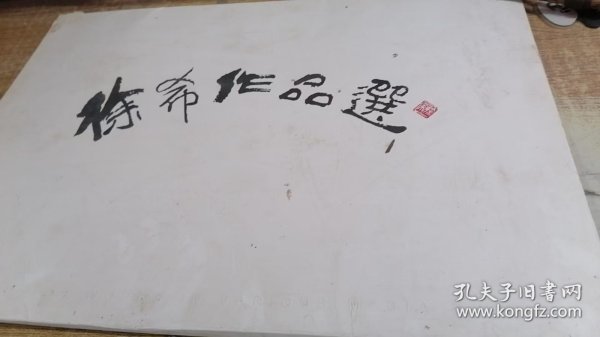 徐希作品選
孔夫子旧书网
www.kongfz.com